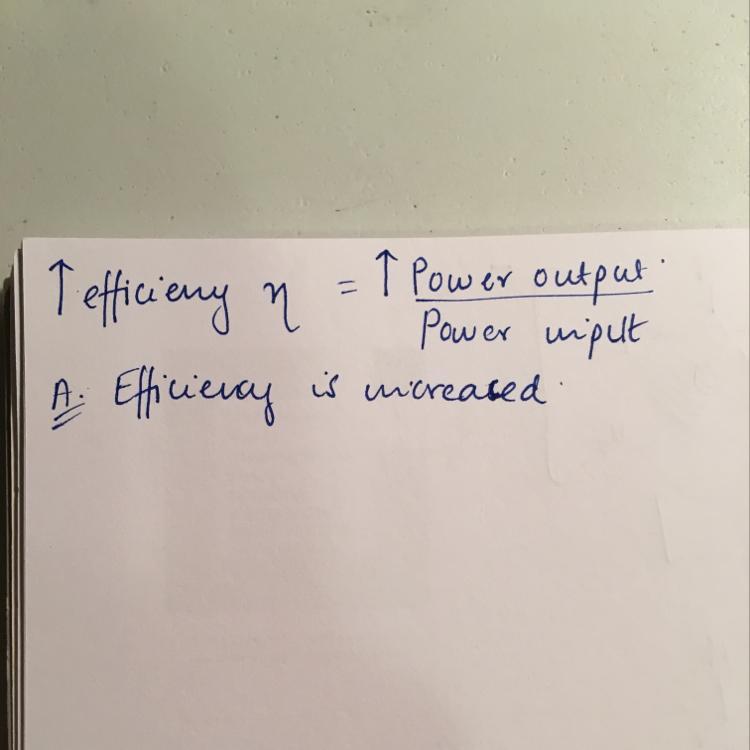 ↑ efficieny η = ↑ Power output
Power input
A. Efficiency is increased.